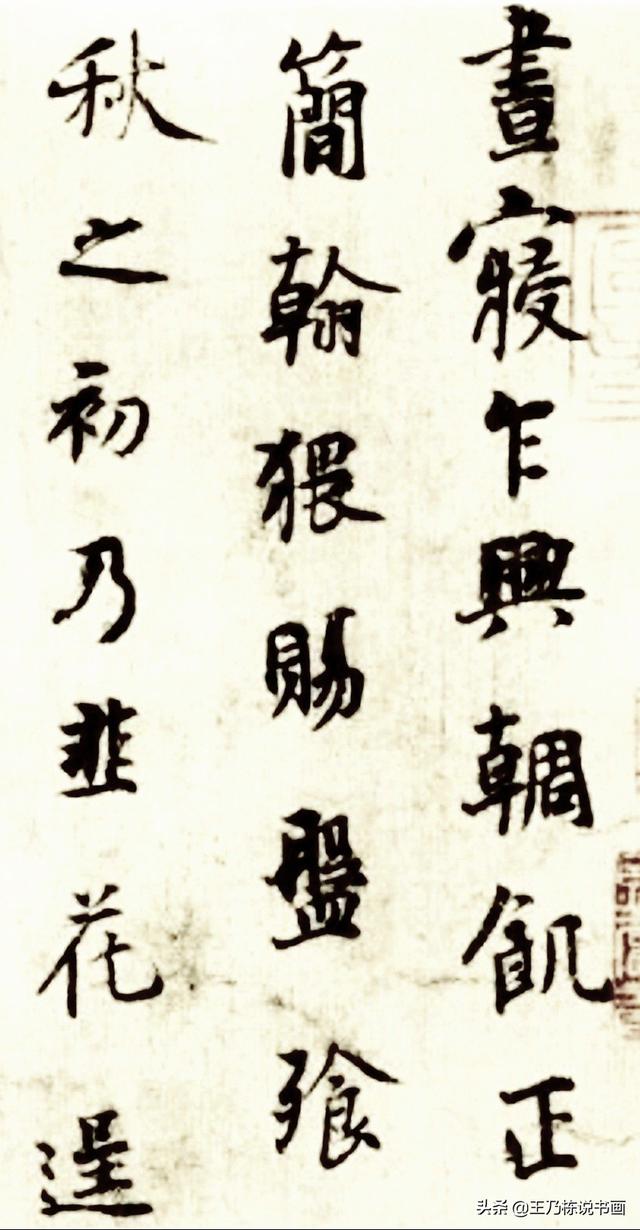 晝寢乍興輖飢正
簡翰猥賜盤飧
秋之初乃韭花逞
头条 @王乃栋说书画